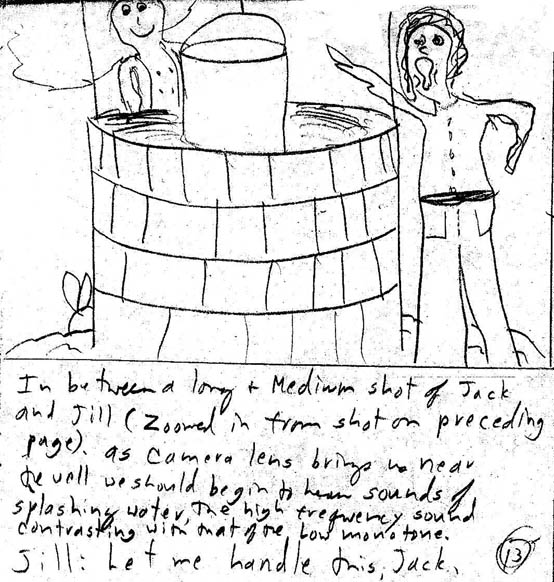 In between a long + Medium shot of Jack
and Jill (Zoomed in from shot on preceding
page). as camera lens brings us near
the well we should begin to hear sounds of
splashing water, the high frequency sound
contrasting with that of the low monotone.
Jill: Let me handle this, Jack.
13